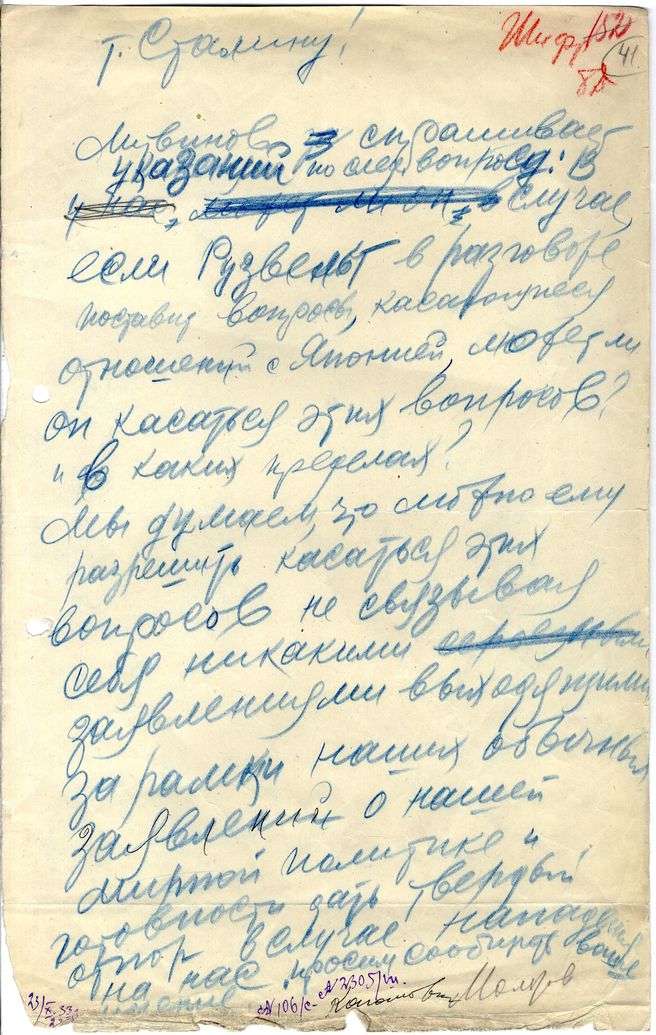 Шифр
41
т. Сталину!
Литвинов спрашивает
указаний по след вопросу: В
случае,
если Рузвельт в разговоре
поставит вопросы, касающиеся
отношений с Японией может ли
он касаться этих вопросов?
и в каких пределах?
Мы думаем, что можно ему
разрешить касаться этих
вопросов не связывая
себя никакими
заявлениями выходящими
за рамки наших обычных
заявлений о нашей
мирной политике и
готовности дать твердый
отпор в случае нападения
на нас. просим сообщить ваше
мнение
Каганович Молотов
23/X 33
№ 106/с - № 2305/ш.